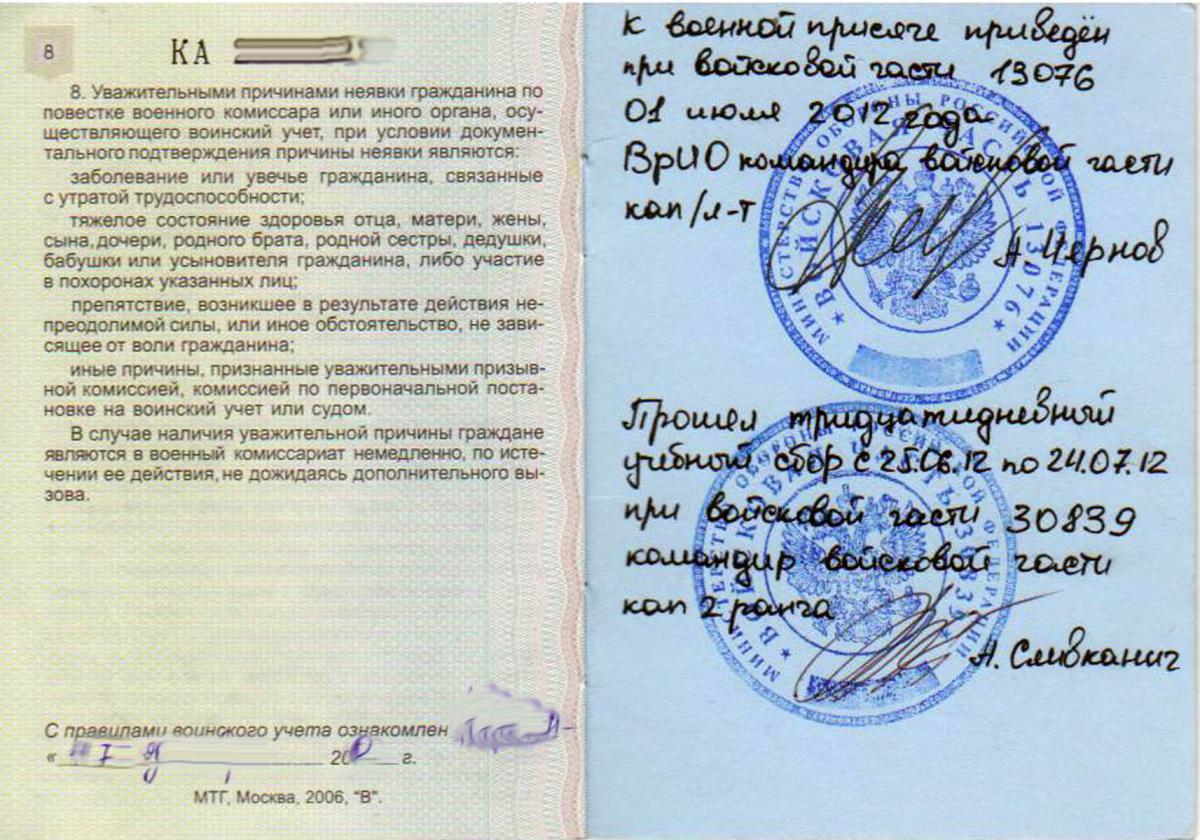 8
КА
8. Уважительными причинами неявки гражданина по
повестке военного комиссара или иного органа, осу-
ществляющего воинский учет, при условии докумен-
тального подтверждения причины неявки являются:
заболевание или увечье гражданина, связанные
с утратой трудоспособности;
тяжелое состояние здоровья отца, матери, жены,
сына, дочери, родного брата, родной сестры, дедушки,
бабушки или усыновителя гражданина, либо участие
в похоронах указанных лиц;
препятствие, возникшее в результате действия не-
преодолимой силы, или иное обстоятельство, не зави-
сящее от воли гражданина;
иные причины, признанные уважительными призыв-
ной комиссией, комиссией по первоначальной поста-
новке на воинский учет или судом.
В случае наличия уважительной причины граждане
являются в военный комиссариат немедленно, по исте-
чении ее действия, не дожидаясь дополнительного вы-
зова.
С правилами воинского учета ознакомлен
« 20 г.
МТГ, Москва, 2006, "В".
К военной присяге приведён
при войсковой части 13076
01 июля 2012 года
ВрИО командира войсковой части
кап/л-т
А. Чернов
МИНИСТЕРСТВО ОБОРОНЫ РОССИЙСКОЙ ФЕДЕРАЦИИ
ВОЙСКОВАЯ ЧАСТЬ 13076
Прошел тридцатидневный
учебный сбор с 25.06.12 по 24.07.12
при войсковой части 30839
командир войсковой части
кап 2 ранга
А. Сливканич
МИНИСТЕРСТВО ОБОРОНЫ РОССИЙСКОЙ ФЕДЕРАЦИИ
ВОЙСКОВАЯ ЧАСТЬ 30839